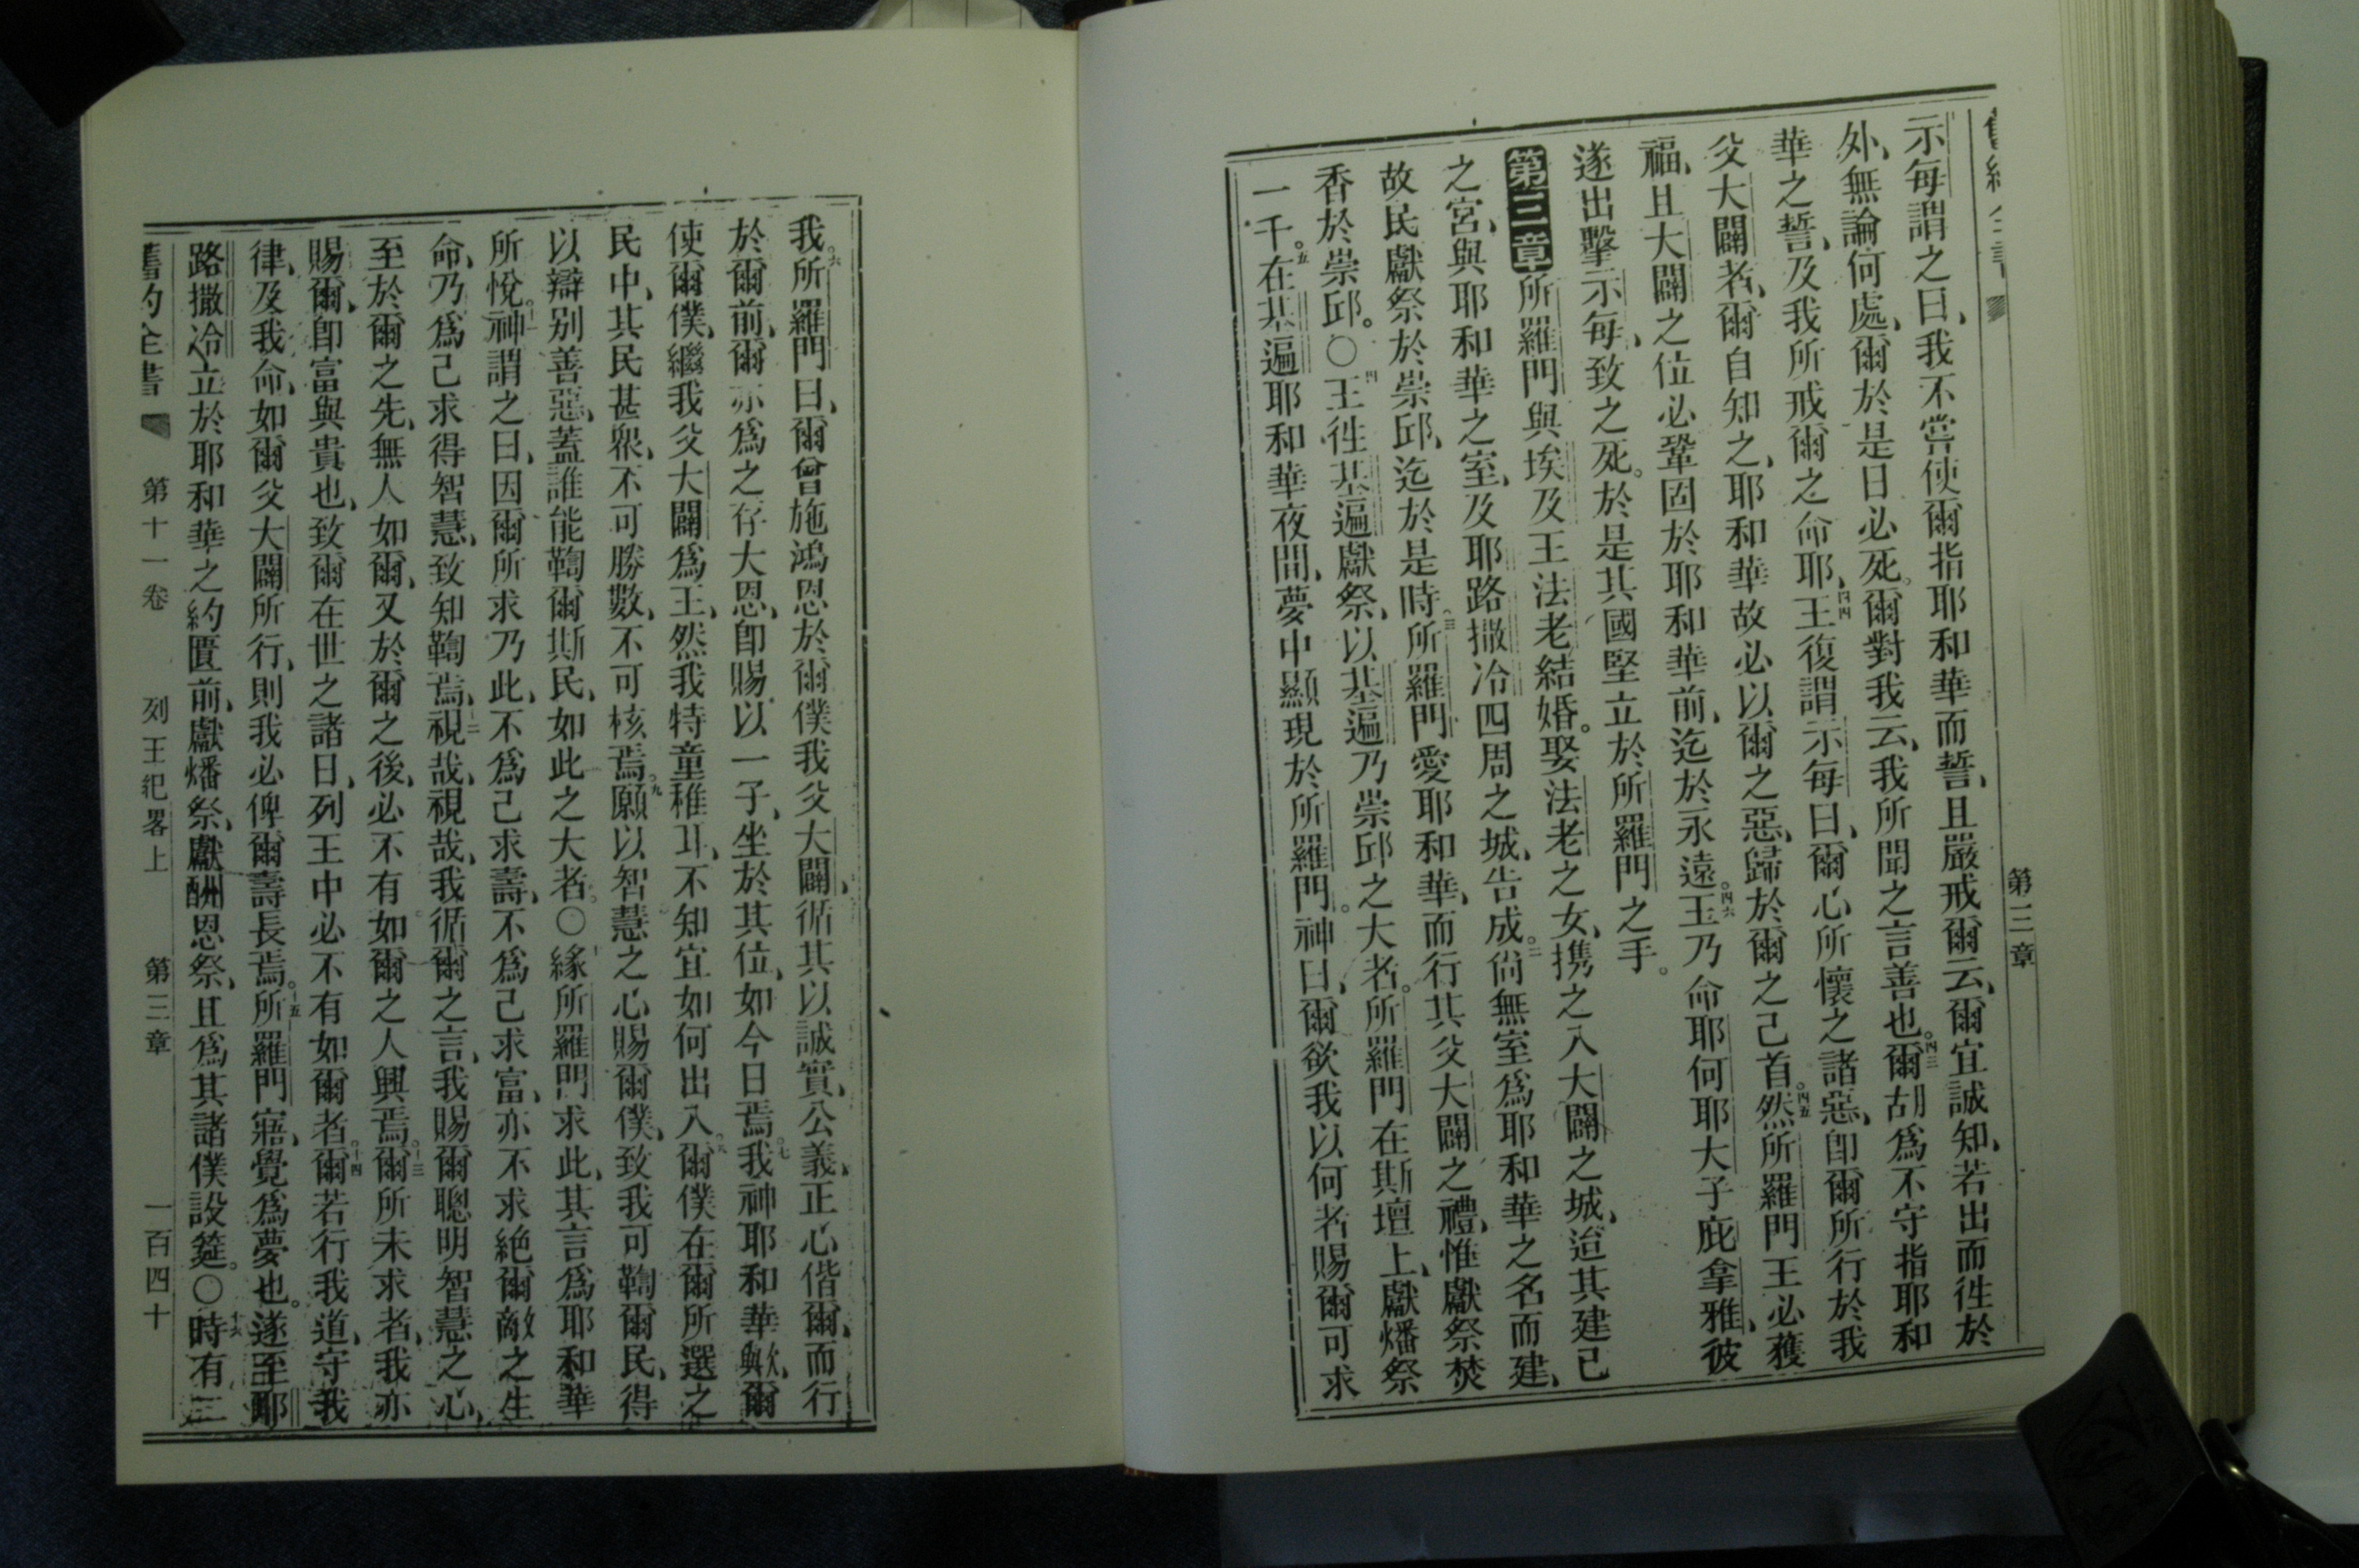 第三章
示每謂之曰、我不嘗使爾指耶和華而誓、且嚴戒爾云、爾宜誠知、若出而徃於
外、無論何處、爾於是日必死。爾對我云、我所聞之言善也。四三爾胡爲不守指耶和
華之誓、及我所戒爾之命耶、四四王復謂示每曰、爾心所懷之諸惡、卽爾所行於我
父大闢者、爾自知之、耶和華故必以爾之惡、歸於爾之己首。四五然所羅門王必獲
福、且大闢之位必鞏固於耶和華前、迄於永遠。四六王乃命耶何耶大子庇拿雅、彼
遂出擊示每、致之死。於是其國堅立於所羅門之手。
第三章所羅門與埃及王法老結婚。娶法老之女、携之入大闢之城、迨其建己
之宮、與耶和華之室、及耶路撒冷四周之城、告成。二尙無室爲耶和華之名而建、
故民獻祭於崇邱、迄於是時。三所羅門愛耶和華、而行其父大闢之禮、惟獻祭焚
香於崇邱。〇四王徃基遍獻祭、以基遍乃崇邱之大者。所羅門在斯壇上、獻燔祭
一千。五在基遍耶和華夜間、夢中顯現於所羅門。神曰、爾欲我以何者賜爾可求
我。六所羅門曰、爾曾施鴻恩於爾僕我父大闢、循其以誠實、公義、正心偕爾、而行
於爾前、爾亦爲之存大恩、卽賜以一子、坐於其位、如今日焉。七我神耶和華歟、爾
使爾僕、繼我父大闢爲王、然我特童稚耳、不知宜如何出入。八爾僕在爾所選之
民中、其民甚衆、不可勝數、不可核焉。九願以智慧之心賜爾僕、致我可鞫爾民、得
以辯别善惡、蓋誰能鞫爾斯民、如此之大者。〇十緣所羅門求此、其言爲耶和華
所悅。十一神謂之曰、因爾所求乃此、不爲己求壽、不爲己求富、亦不求絕爾敵之生
命、乃爲己求得智慧、致知鞫焉、十二視哉、視哉、我循爾之言、我賜爾聰明智慧之心、
至於爾之先、無人如爾、又於爾之後、必不有如爾之人興焉。十三爾所未求者、我亦
賜爾、卽富與貴也、致爾在世之諸日、列王中必不有如爾者。十四爾若行我道、守我
律、及我命、如爾父大闢所行、則我必俾爾壽長焉。十五所羅門寤、覺爲夢也。遂至耶
路撒冷立於耶和華之約匱前、獻燔祭、獻酬恩祭、且爲其諸僕設筵。〇十六時有二
舊約全書 第十一卷 列王紀畧上 第三章 一百四十